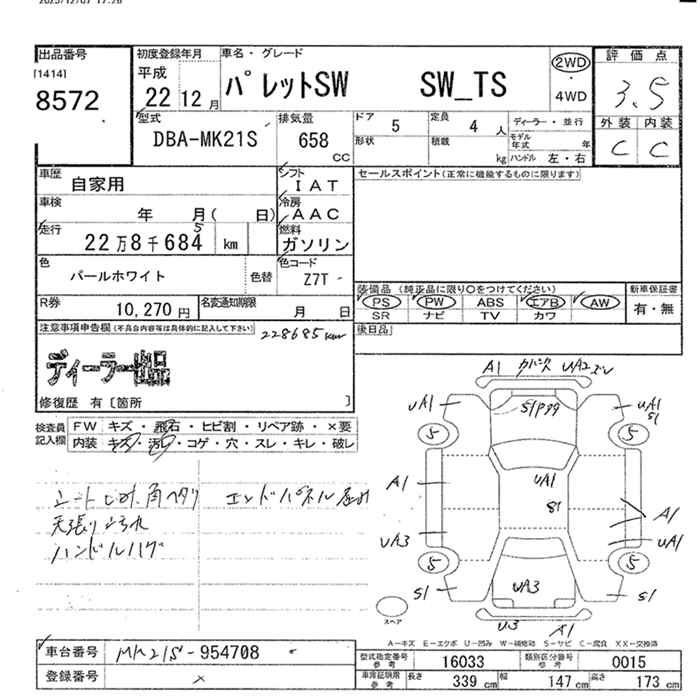 出品番号
[1414]
8572
初度登録年月
平成
22 12 月
車名・グレード
パレットSW SW_TS
2WD
4WD
評価点
3.5
外装 内装
C C
型式
DBA-MK21S
排気量
658
cc
ドア
5
定員
4 人
形状
積載
kg
ディーラー・並行
モデル年式 年
ハンドル 左・右
車歴
自家用
シフト
IAT
車検
年 月( 日)
冷房
AAC
走行
22万8千684 km
5
燃料
ガソリン
色
パールホワイト
色替
色コード
Z7T -
R券
10,270 円
名変通知期限
月 日
セールスポイント(正常に機能するものに限ります)
装備品 (純正品に限り○をつけてください)
PS PW ABS エアB AW
SR ナビ TV カワ
新車保証書
有・無
後日品
注意事項申告欄(不具合内容等は具体的に記入して下さい)
228685km
ディーラー出品
修復歴 有〔箇所 〕
検査員記入欄
FW キズ・飛石・ヒビ割・リペア跡・×要
内装 キズ・汚レ・コゲ・穴・スレ・キレ・破レ
シートしみ、角ヘタリ エンドパネル
天張り
ハンドルハゲ
A1 UA2 ズレ
UA1 UA1
S1
5 5
A1 UA1
S1
A1
UA3 UA1
5 5
S1 UA3 S1
U3 A1
スペア
A-キズ E-エクボ U-凹み W-補修跡 S-サビ C-腐食 XX-交換済
車台番号
MK21S-954708
登録番号
×
型式指定番号
参考
16033
類別区分番号
参考
0015
車庫証明用
参考
長さ 339 cm 幅 147 cm 高さ 173 cm